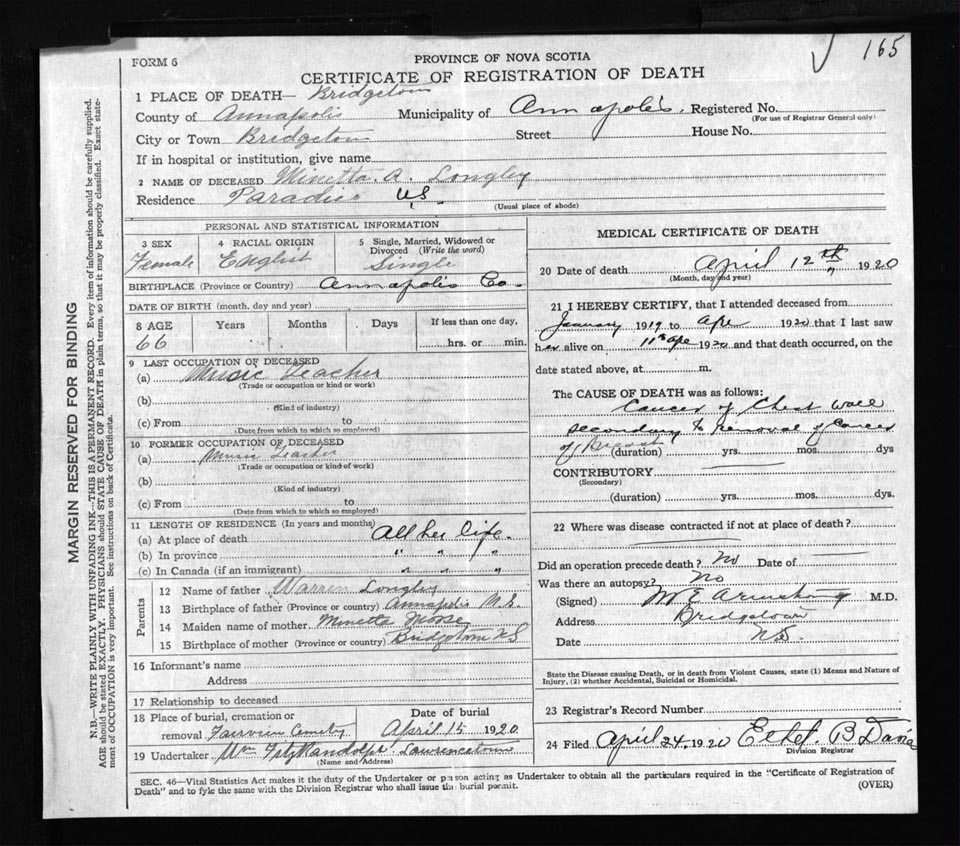 165
FORM 6
PROVINCE OF NOVA SCOTIA
CERTIFICATE OF REGISTRATION OF DEATH
1 PLACE OF DEATH— Bridgetown
County of Annapolis Municipality of Annapolis. Registered No.
(For use of Registrar General only)
City or Town Bridgetown Street House No.
If in hospital or institution, give name
2 NAME OF DECEASED Minetta. A. Longley
Residence Paradise
(Usual place of abode)
PERSONAL AND STATISTICAL INFORMATION
3 SEX Female
4 RACIAL ORIGIN English
5 Single, Married, Widowed or Divorced (Write the word) Single
BIRTHPLACE (Province or Country) Annapolis Co.
DATE OF BIRTH (month, day and year)
8 AGE Years Months Days If less than one day,
66 hrs. or min.
9 LAST OCCUPATION OF DECEASED
(a) Music Teacher
(Trade or occupation or kind or work)
(b)
(Kind of industry)
(c) From to
(Date from which to which so employed)
10 FORMER OCCUPATION OF DECEASED
(a) Music Teacher
(Trade or occupation or kind of work)
(b)
(Kind of industry)
(c) From to
(Date from which to which so employed)
11 LENGTH OF RESIDENCE (In years and months)
(a) At place of death All her life.
(b) In province " " "
(c) In Canada (if an immigrant) " " "
Parents
12 Name of father Warren Longley
13 Birthplace of father (Province or country) Annapolis N.S.
14 Maiden name of mother Minetta Morse
15 Birthplace of mother (Province or country) Bridgetown N S
16 Informant's name
Address
17 Relationship to deceased
18 Place of burial, cremation or Date of burial
removal Fairview Cemetery April 15 1920
19 Undertaker Wm FitzRandolph Lawrencetown
(Name and Address)
MEDICAL CERTIFICATE OF DEATH
20 Date of death April 12th 1920
(Month, day and year)
21 I HEREBY CERTIFY, that I attended deceased from
January 1919 to Apr 1920 that I last saw
her alive on 11th Apr 1920 and that death occurred, on the
date stated above, at m.
The CAUSE OF DEATH was as follows:
Cancer of Chest wall
secondary to removal of Cancer
of Breast (duration) yrs. mos. dys
CONTRIBUTORY
(Secondary)
(duration) yrs. mos. dys.
22 Where was disease contracted if not at place of death?
Did an operation precede death? No Date of
Was there an autopsy? No
(Signed) M E Armstrong M.D.
Address Bridgetown
Date N.S.
State the Disease causing Death, or in death from Violent Causes, state (1) Means and Nature of
Injury, (2) whether Accidental, Suicidal or Homicidal.
23 Registrar's Record Number
24 Filed April 24, 1920 B
Division Registrar
SEC. 46—Vital Statistics Act makes it the duty of the Undertaker or person acting as Undertaker to obtain all the particulars required in the "Certificate of Registration of
Death" and to fyle the same with the Division Registrar who shall issue the burial permit.
(OVER)
MARGIN RESERVED FOR BINDING
N.B.—WRITE PLAINLY WITH UNFADING INK—THIS IS A PERMANENT RECORD. Every item of information should be carefully supplied.
AGE should be stated EXACTLY. PHYSICIANS should STATE CAUSE OF DEATH in plain terms, so that it may be properly classified. Exact state-
ment of OCCUPATION is very important. See instructions on back of Certificate.